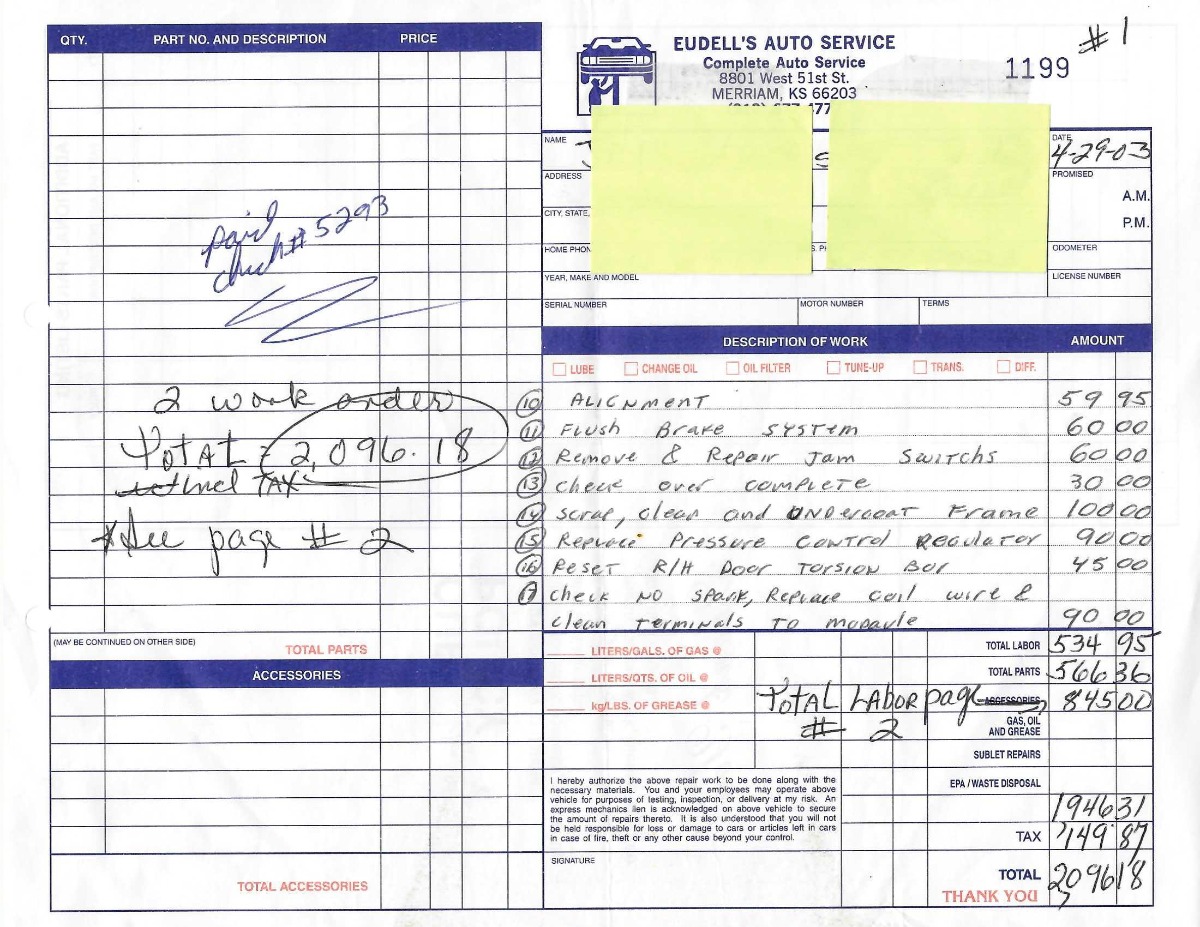 #1
EUDELL'S AUTO SERVICE
Complete Auto Service
8801 West 51st St.
MERRIAM, KS 66203
1199
QTY. PART NO. AND DESCRIPTION PRICE
paid
check# 5293
2 work order
TOTAL = 2,096.18
incl TAX
*See page # 2
(MAY BE CONTINUED ON OTHER SIDE)
TOTAL PARTS
ACCESSORIES
TOTAL ACCESSORIES
NAME
DATE 4-29-03
ADDRESS
PROMISED
A.M.
P.M.
CITY, STATE,
HOME PHON
ODOMETER
YEAR, MAKE AND MODEL
LICENSE NUMBER
SERIAL NUMBER MOTOR NUMBER TERMS
DESCRIPTION OF WORK AMOUNT
LUBE CHANGE OIL OIL FILTER TUNE-UP TRANS. DIFF.
10 ALIGNMENT 59 95
11 Flush Brake SYSTEM 60 00
12 Remove & Repair Jam Switchs 60 00
13 Check over COMPLETE 30 00
14 Scrap, clean and UNDERCOAT Frame 100 00
15 Replace Pressure CONTROL REGULATOR 90 00
16 RESET R/H DOOR TORSION Bar 45 00
17 Check NO SPARK, Replace coil wire &
clean Terminals TO modavle 90 00
LITERS/GALS. OF GAS @ TOTAL LABOR 534 95
LITERS/QTS. OF OIL @ TOTAL PARTS 566 36
kg/LBS. OF GREASE @ TOTAL LABOR page ACCESSORIES 845 00
# 2 GAS, OIL
AND GREASE
SUBLET REPAIRS
EPA / WASTE DISPOSAL
1946 31
TAX 149 87
TOTAL 2,096 18
THANK YOU
I hereby authorize the above repair work to be done along with the
necessary materials. You and your employees may operate above
vehicle for purposes of testing, inspection, or delivery at my risk. An
express mechanics lien is acknowledged on above vehicle to secure
the amount of repairs thereto. It is also understood that you will not
be held responsible for loss or damage to cars or articles left in cars
in case of fire, theft or any other cause beyond your control.
SIGNATURE